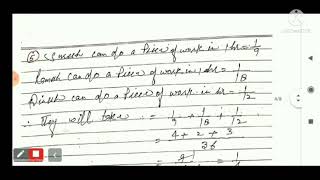 ⑤ Suresh can do a piece of work in 1 hr = 1/9
Ramesh can do a piece of work in 1 hr = 1/18
Dinesh can do a piece of work in hr = 1/12
∴ They will take = 1/9 + 1/18 + 1/12
= 4 + 2 + 3 / 36
= 9/